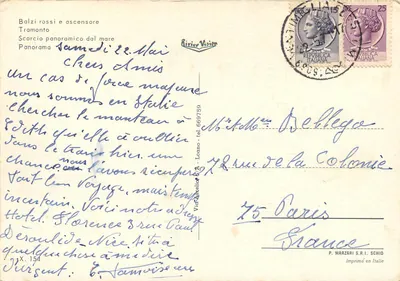 Balzi rossi e ascensore
Tramonto
Scorcio panoramico dal mare
Panorama
samedi 22 Mai
Chers Amis
Un cas de force majeure
nous sommes en Italie
chercher le manteau à
Edith qu'elle a oublier
dans le train hier, un
chance, nous l'avons
tout bon Voyage, mais temps
incertain. Voici notre adresse
Hotel Florence 3 rue Paul
Déroulède Nice, si tu a
quelque chose à me dire
d'urgent.
X. 154
25
Mr & Mme Bellego
78 rue de la Colonie
75 Paris
France
Imprimé en Italie